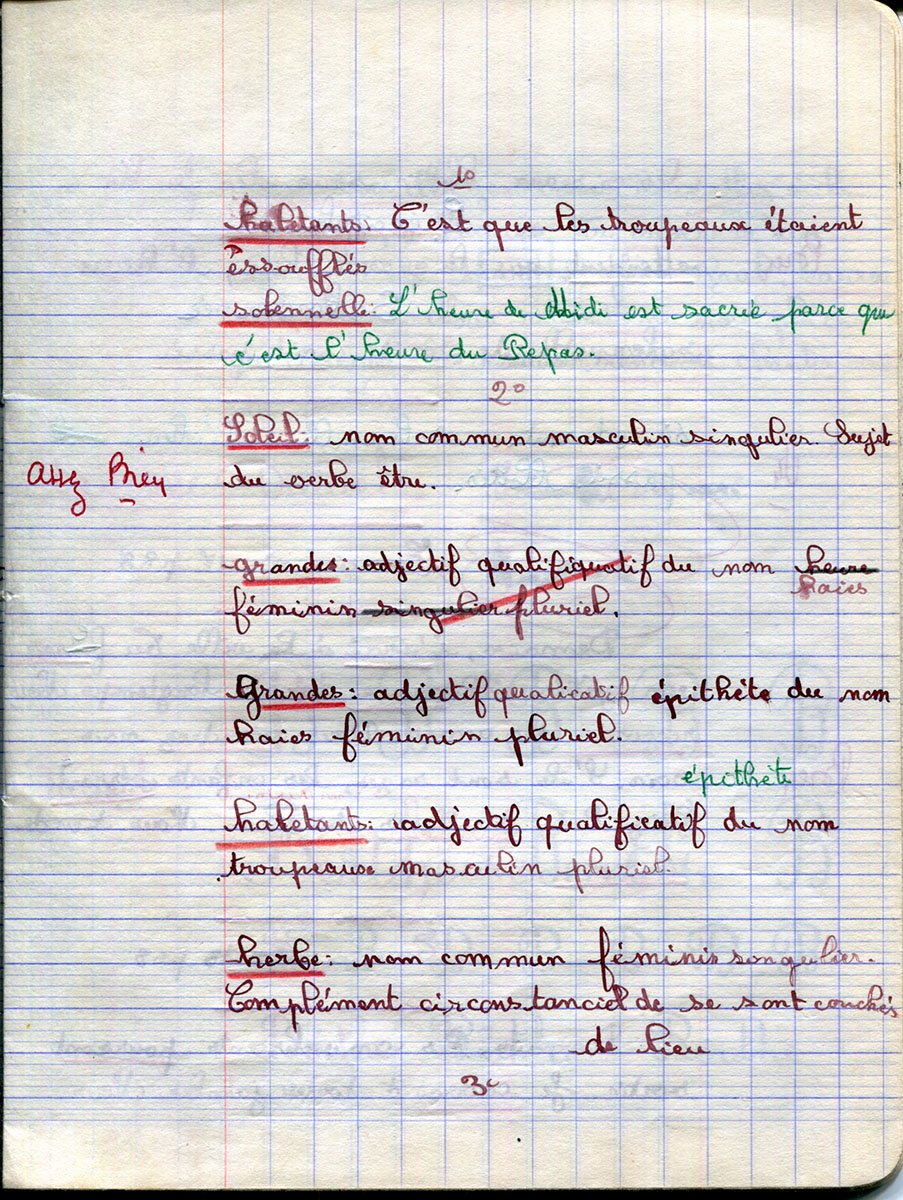 1º
haletants: C'est que les troupeaux étaient
éssoufflés
solennelle: L'heure de Midi est sacrée parce que
c'est l'heure du Repas.
2º
Soleil: nom commun masculin singulier. Sujet
du verbe être.
assez Bien
grandes: adjectif qualifiquatif du nom heure
haies
féminin singulier pluriel.
Grandes: adjectif qualicatif épithète du nom
haies féminin pluriel.
épithète
haletants: adjectif qualificatif du nom
troupeaux masculin pluriel.
herbe: nom commun féminin songulier.
Complément circonstanciel de se sont couchés
de lieu
3º